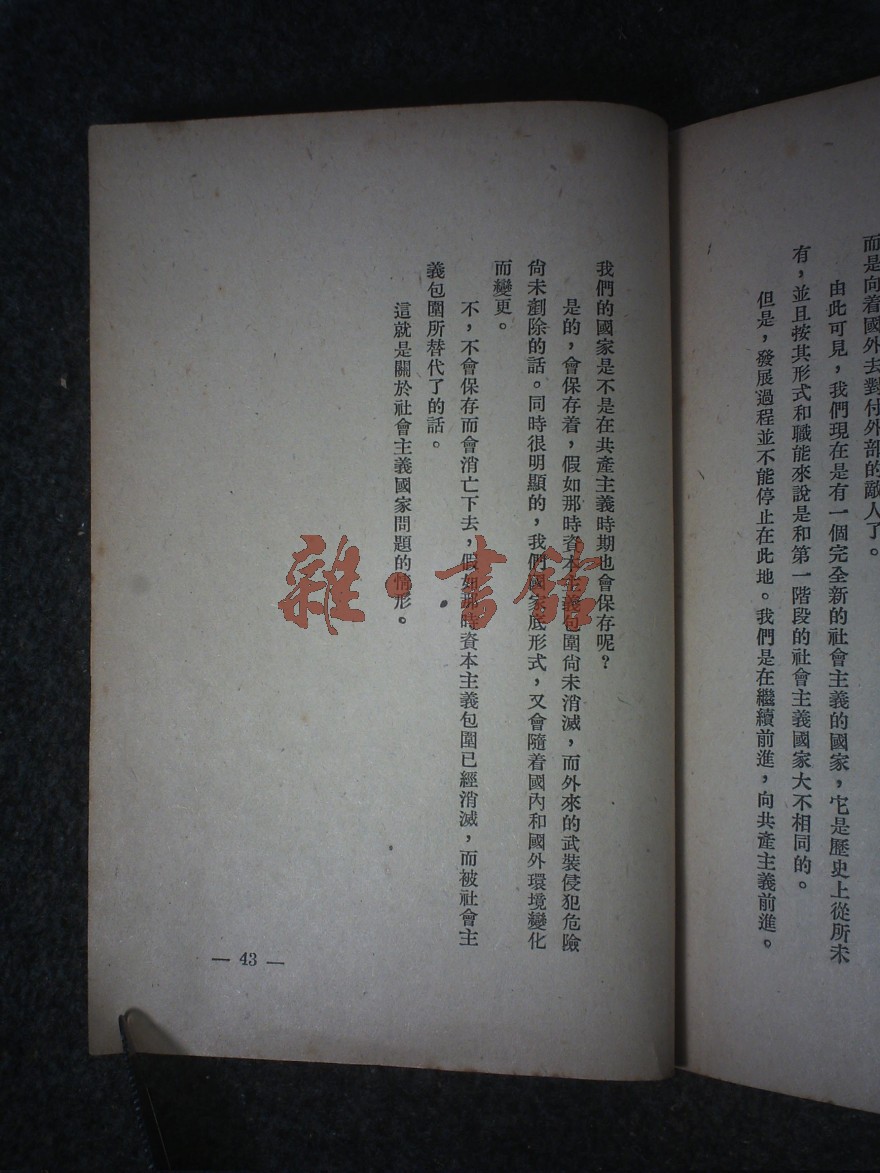 而是向着國外去對付外部的敵人了。
由此可見，我們現在是有一個完全新的社會主義的國家，它是歷史上從所未
有，並且按其形式和職能來說是和第一階段的社會主義國家大不相同的。
但是，發展過程並不能停止在此地。我們是在繼續前進，向共產主義前進。
我們的國家是不是在共產主義時期也會保存呢？
是的，會保存着，假如那時資本主義包圍尙未消滅，而外來的武裝侵犯危險
尙未剷除的話。同時很明顯的，我們國家底形式，又會隨着國內和國外環境變化
而變更。
不，不會保存而會消亡下去，假如那時資本主義包圍已經消滅，而被社會主
義包圍所替代了的話。
這就是關於社會主義國家問題的情形。
— 43 —
雜·書館